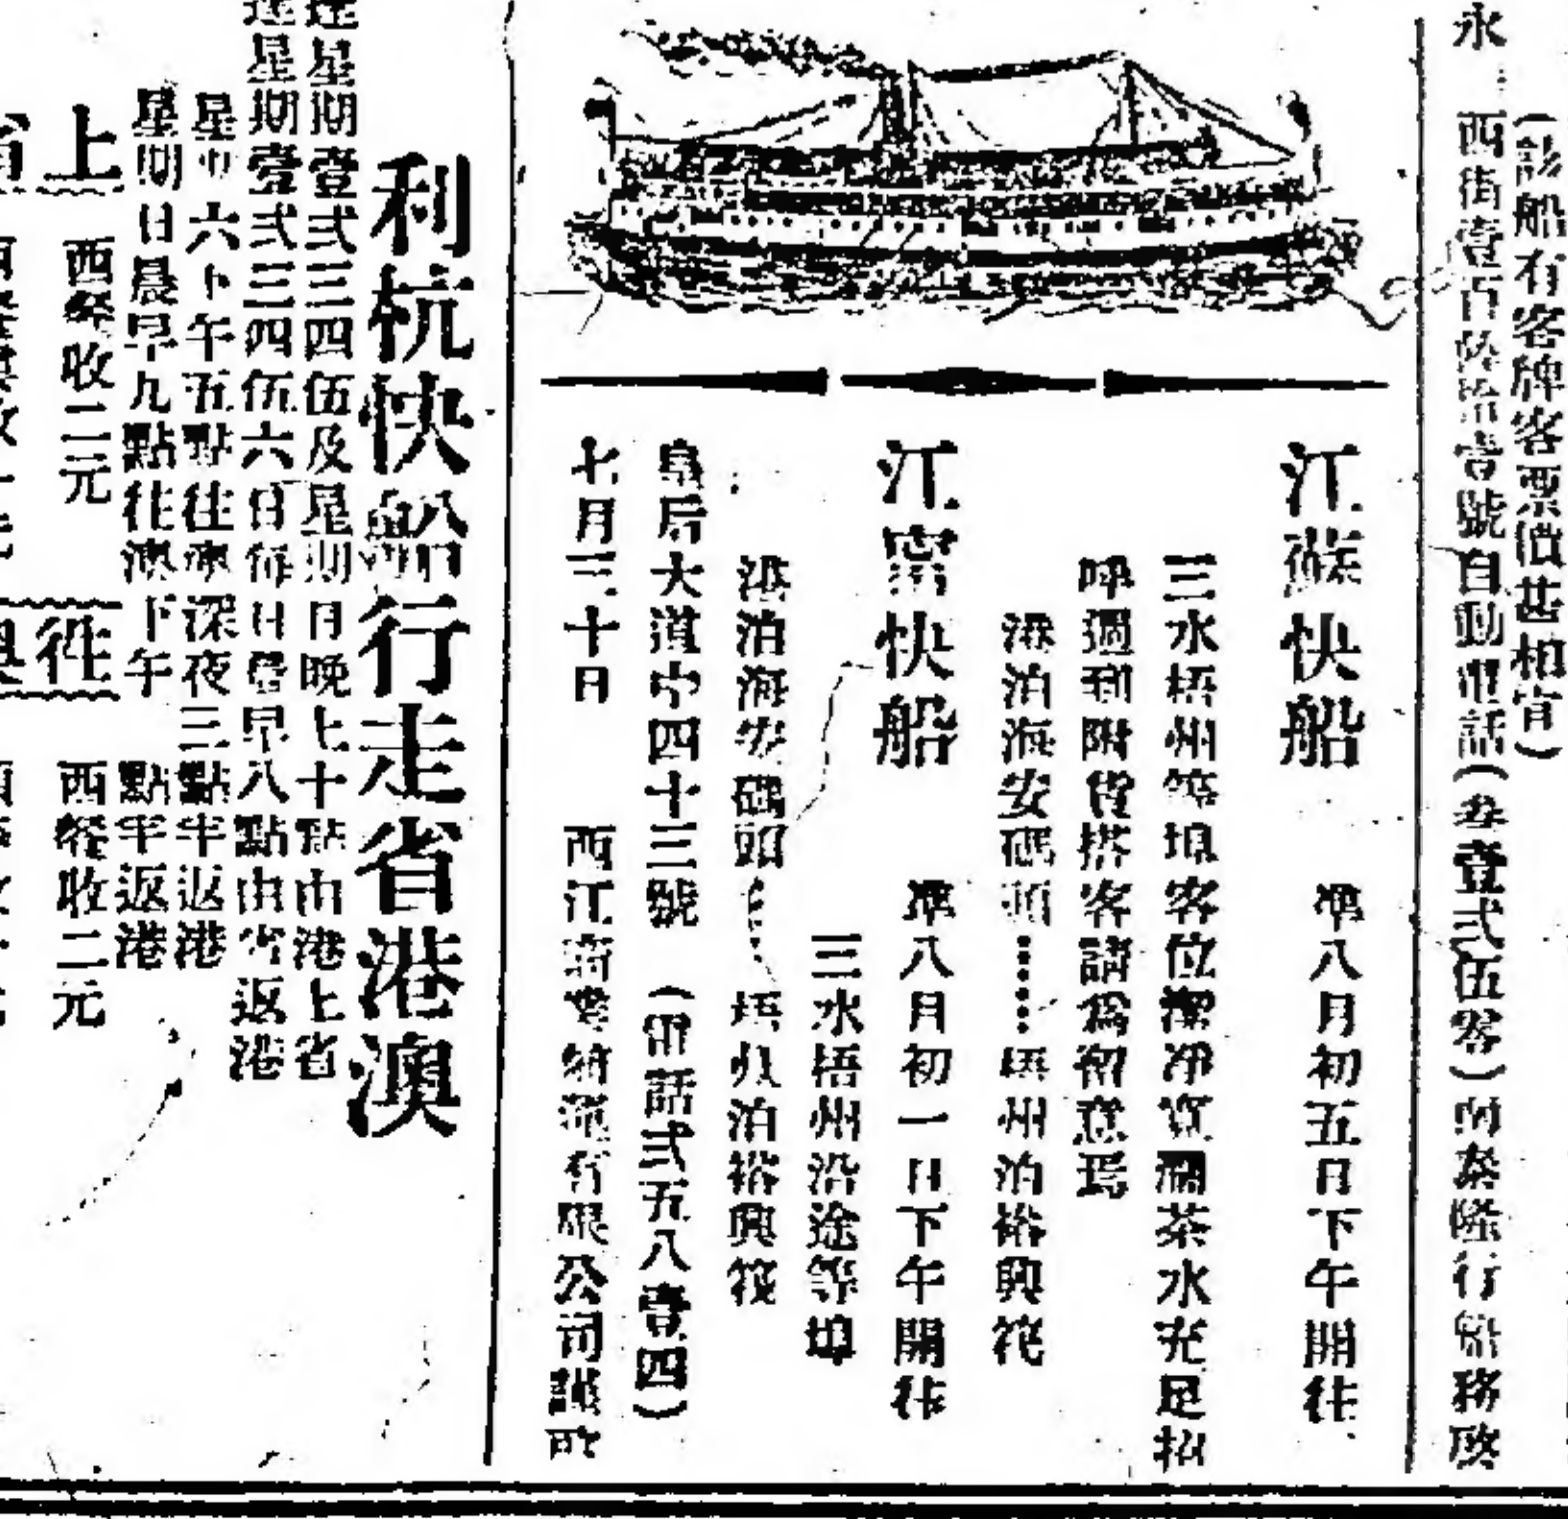 (該船有客牌客票價甚相宜)
永
西街壹百陸拾壹號自動電話(叁壹弍伍零)尚泰隆行船務啟
江蘇快船
準八月初五日下午開往
三水梧州等埠客位潔净寬濶茶水充足招
呼週到附貨搭客請爲留意焉
港泊海安碼頭⋯⋯梧州泊裕興筏
江寗快船
準八月初一日下午開往
三水梧州沿途等埠
港泊海安碼頭 梧州泊裕興筏
皇后大道中四十三號 (電話弍五八壹四)
七月三十日
西江 有限公司謹啟
利杭快船行走省港澳
逢星期壹弍三四伍及星期日晚上十點由港上省
逢星期壹弍三四伍六日每日晨早八點由省返港
星期六下午五點往澳深夜三點半返港
星期日晨早九點往澳下午 點半返港
上
西餐收二元
往
西餐收二元